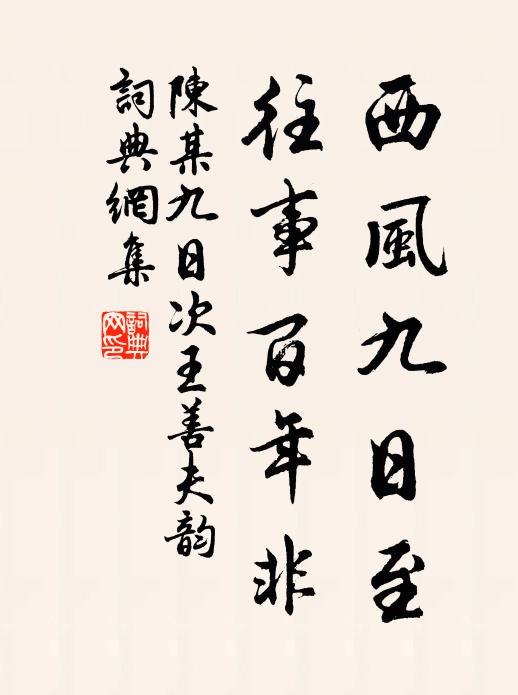 西風九日至
往事百年非
陳某九日次王善夫韵
詞典網集
詞典
网印